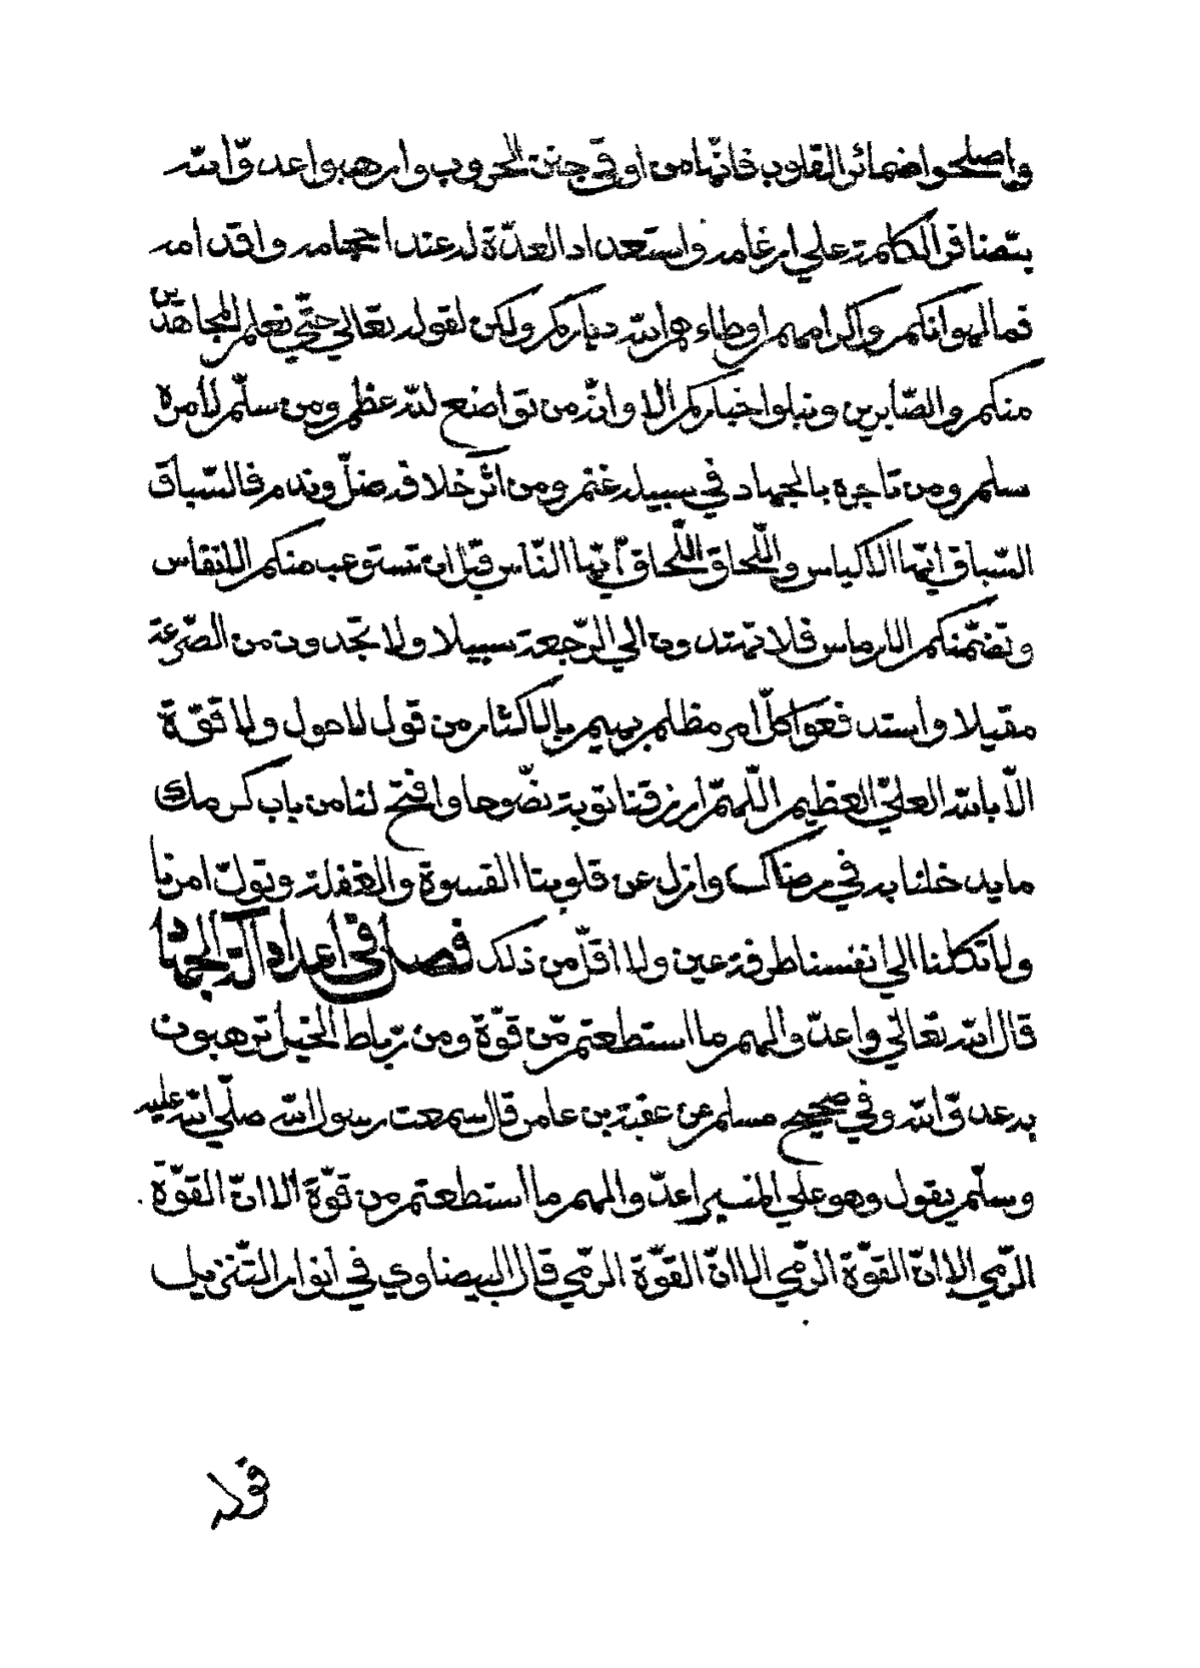 واصلحوا ضمائر القلوب فانها من اوقى جنن الحروب وارهبوا عدو الله
بتضافر الكلمة على ارغامه واستعداد العدّة له عند احجامه واقدامه
فما لهوانكم واكرامهم اوطاءهم الله دياركم ولكن لقوله تعالى حتّى نعلم المجاهدين
منكم والصّابرين ونبلوا خباركم الا وانّه من تواضع لله عظم ومن سلّم لامره
سلم ومن تاجره بالجهاد في سبيله غنم ومن اثر خلافه ضلّ وندم فالسّباق
السّباق ايّها الاكياس واللّحاق اللّحاق ايّها النّاس قبل ان تستوعب منكم الانفاس
وتضمّنكم الارماس فلا تهتدون الي الرّجعة سبيلا ولا تجدون من الصّرعة
مقيلا واستدفعوا كلّ امر مظلم بهيم بالاكثار من قول لا حول ولا قوّة
الّا بالله العليّ العظيم اللّهمّ ارزقنا توبة نصّوحا وافتح لنا من باب كرمك
ما يدخلنا به في رضاك وازل عن قلوبنا القسوة والغفلة وتولّ امرنا
ولا تكلنا الي انفسنا طرفة عين ولا اقلّ من ذلك فصل في اعداد آلة الجهاد
قال الله تعالي واعدّوا لهم ما استطعتم مّن قوّة ومن رّباط الخيل ترهبون
به عدوّ الله وفي صحيح مسلم عن عقبة بن عامر قال سمعت رسول الله صلّي الله عليه
وسلّم يقول وهو علي المنبر اعدّوا لهم ما استطعتم من قوّة الا انّ القوّة
الرّمي الا انّ القوّة الرّمي الا انّ القوّة الرّمي قال البيضاوي في انوار التّنزيل